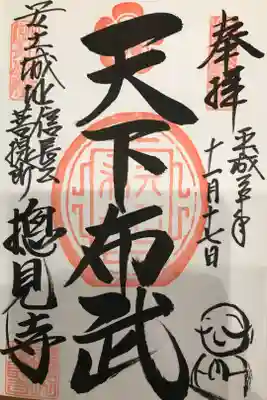 奉拝
平成三十年
十一月十七日
天下布武
安土城址信長公
菩提所
摠見寺